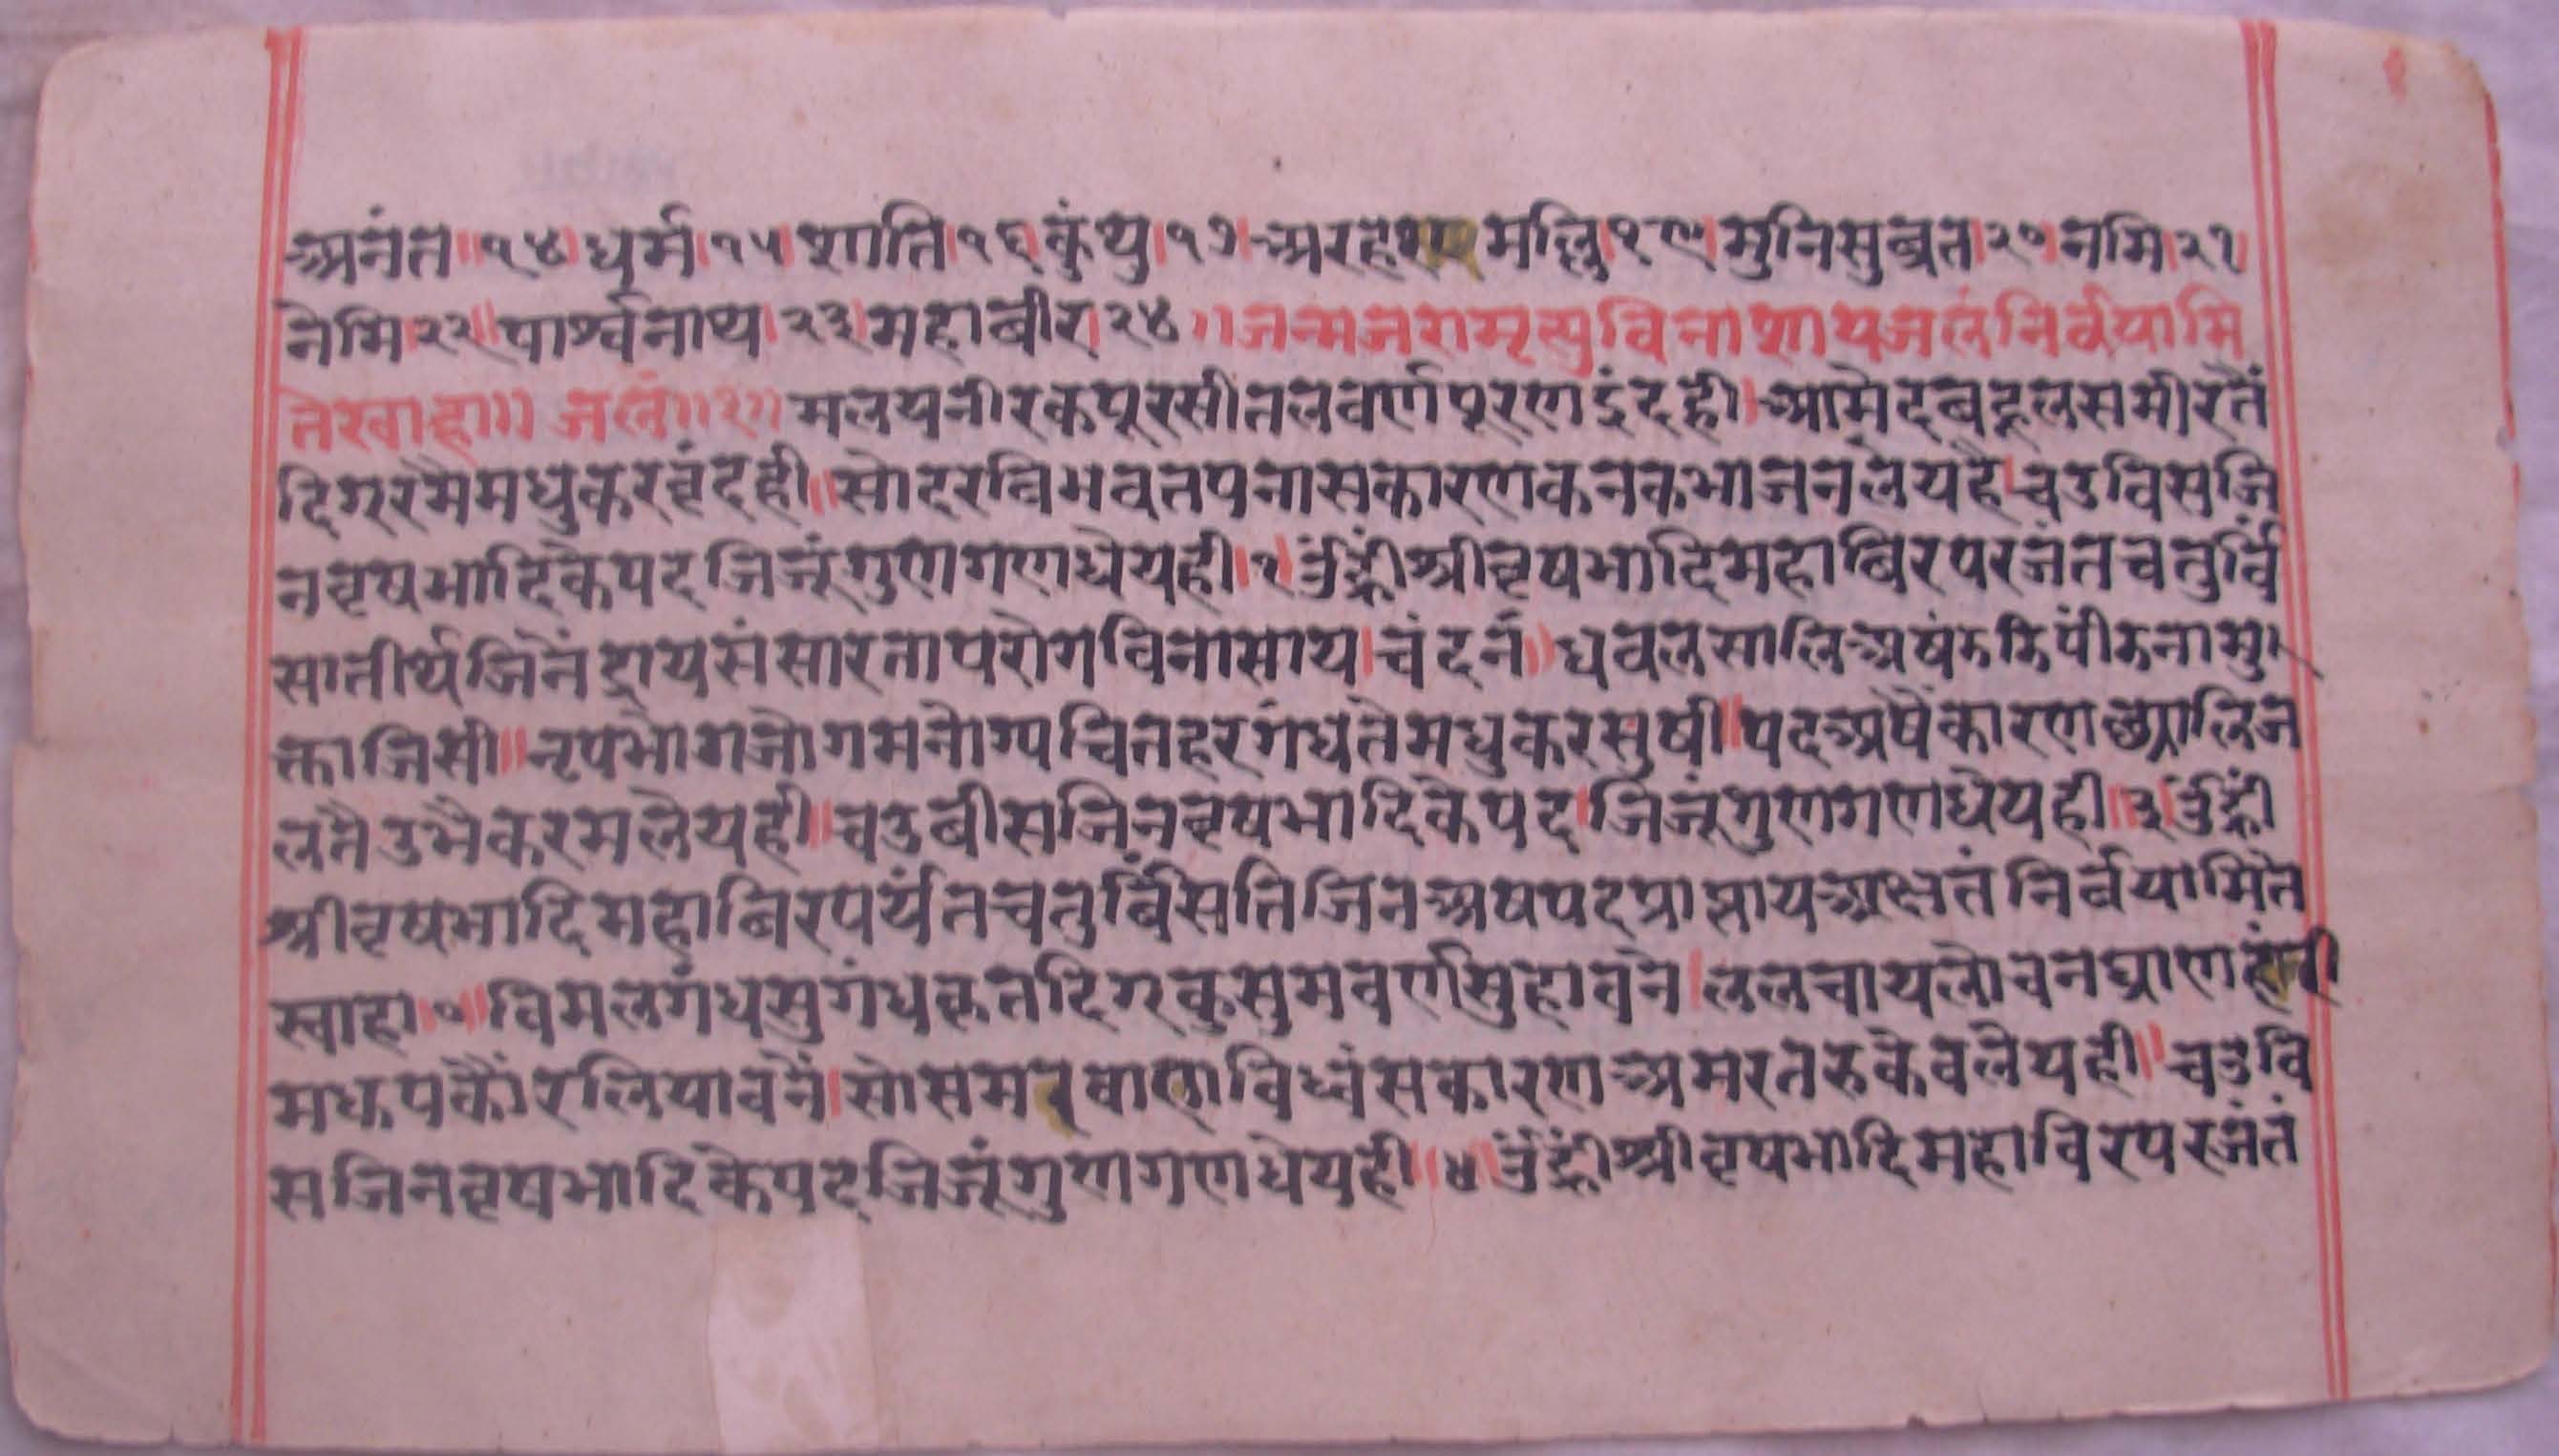 अनंत॥१४।धर्म।१५।शाति।१६।कुंथु।१७।अरह मल्लि१९।मुनिसुब्रत।२०।नमि।२१।
नेमि।२२॥पार्श्वनाथ।२३।महाबीर।२४॥जन्मजरामृत्युविनाशायजलंनिर्वयामि
तेस्वाहा॥जलं॥१॥मलयनीरकपूरसीतलवर्णपूरणइंदही।आमेदबहूलसमीरतैं
दिगररमैमधुकरवृंदही॥सोदरविभवतपनासकारणकनकभाजनलेयहै।चउविसजि
नवृषभादिकैपदजिजूंगुणगणधेयही।२।उँह्रींश्रीवृषभादिमहाबिरपरजंतचतुर्वि
सातीर्थजिनेंद्रायसंसारतापरोगविनासाय।चंदनं॥धवलसालिअषंड नामु
क्ताजिसी॥नृपभोगजोगमनोग्यचितहरगंधतेमधुकरसुषी॥पदअषैकारण
लतैउभैकरमलेयही॥चउबीसजिनवृषभादिकेपद।जिजूंगुणगणधेयही॥३।उँह्रीं
श्रीवृषभादिमहाबिरपर्यंतचतुर्बिंसतिजिनअषपदप्राप्तायअक्षतंनिर्बयामिते
स्वाहा॥विमलगंधसुगंधकृतदिगरकुसुमवर्णसुहावने।ललचायलोचनघ्राण
मधुपकौंरलियावनें।सोसमरबाणविध्वंसकारणअमरतरुकेवलेयही॥चउवि
सजिनवृषभादिकेपदजिजूंगुणगणधेयही॥४॥उँह्रींश्रीवृषभादिमहाविरपरजंतं